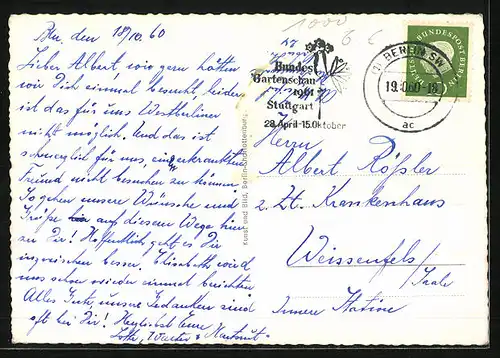 Bln, den 18/10. 60
Lieber Albert, wie gern hätten
wir Dich einmal besucht, leider
ist das für uns Westberliner
nicht möglich. Und das ist
schmerzlich für uns, ein erkrankten
Freund nicht besuchen zu können.
So gehen unsere Wünsche und
Grüße auf diesem Wege hin
zu Dir! Hoffentlich geht es Dir
inzwischen besser. Elisabeth wird
uns schon wieder einmal berichten
Alles Gute, unsere Gedanken sind
oft bei Dir! Herzlichst Eure
Lotte, Walter & Hartmut
Kunst und Bild, Berlin-Charlottenburg
1000
Bundes
Gartenschau
1961
Stuttgart
28. April-15. Oktober
(1) BERLIN SW
19.10.60-18
ac
DEUTSCHE BUNDESPOST BERLIN
Herrn
Albert Rößler
z. Zt. Krankenhaus
Weissenfels/
Saale
Innere Station